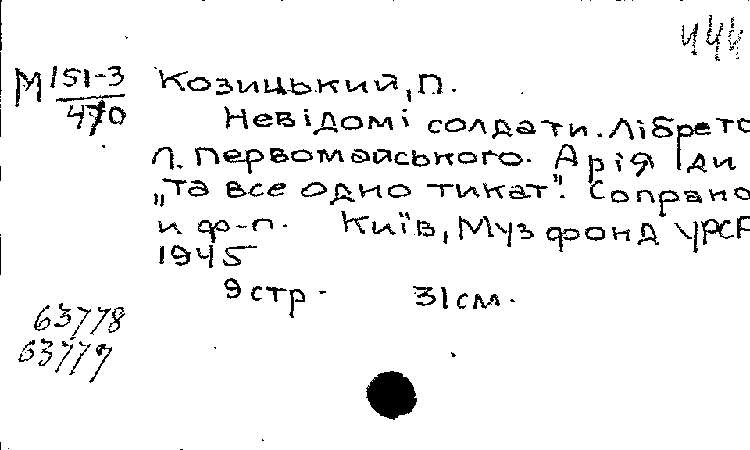 444
М 151-3 Козицький, П.
470
Невідомі солдати. Лібрето
Л. Первомайського. Арія Іди
„Та все одно тикат". Сопрано
и ф-п. Київ, Музфонд УРСР
1945
9 стр. 31 см.
63778
63777